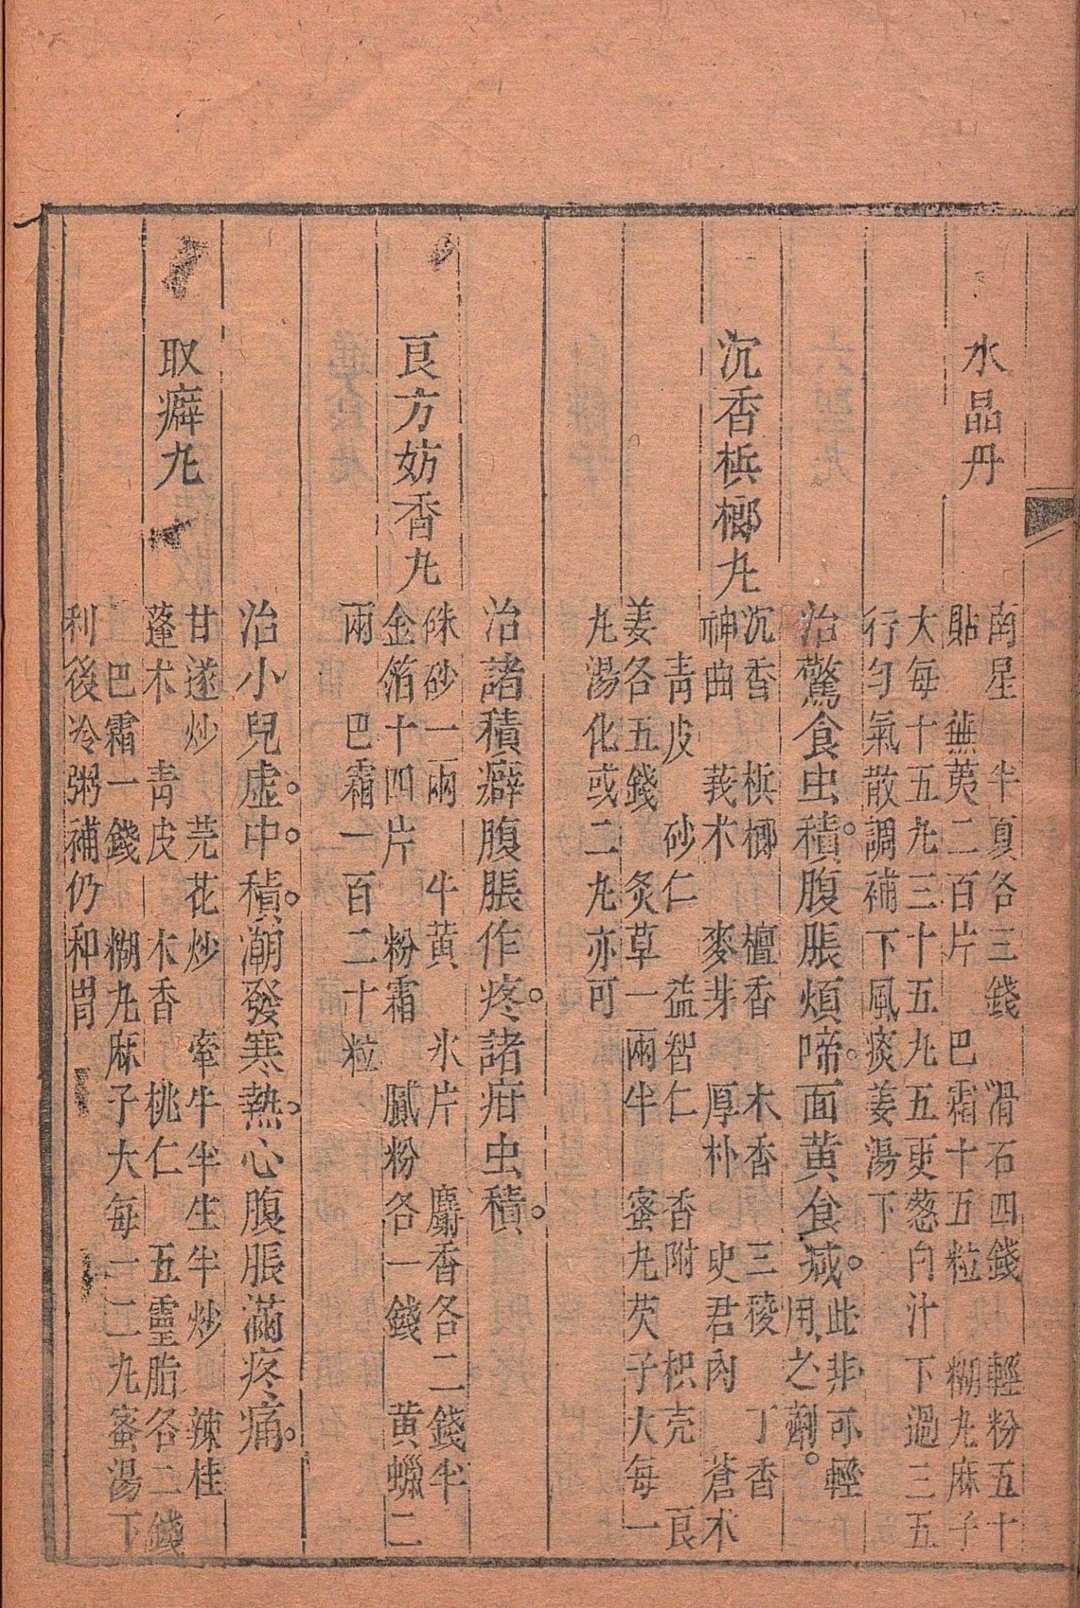 水晶丹
南星 半夏各三錢 滑石四錢 輕粉五十
貼 蕪荑二百片 巴霜十五粒 糊丸麻子
大每十五丸三十五丸五更葱白汁下過三五
行匀氣散調補下風痰姜湯下
治驚食虫積腹脹煩啼面黄食减此非可輕
用之劑
沉香梹榔丸
沉香 梹榔 檀香 木香 三稜 丁香
神曲 莪术 麥芽 厚朴 史君肉 蒼术
青皮 砂仁 益智仁 香附 枳壳 良
姜各五錢 炙草一兩半 蜜丸芡子大每一
丸湯化或二丸亦可
治諸積癖腹脹作疼諸疳虫積
良方妨香丸
侏砂一兩 牛黄 氷片 麝香各二錢半
金箔十四片 粉霜 膩粉各一錢 黄蠟二
兩 巴霜一百二十粒
治小兒虛中積潮發寒熱心腹脹滿疼痛
取癖丸
甘遂炒 芫花炒 牽牛半生半炒 辣桂
蓬术 青皮 木香 桃仁 五靈脂各二錢
巴霜一錢 糊丸麻子大每一二丸蜜湯下
利後冷粥補仍和胃